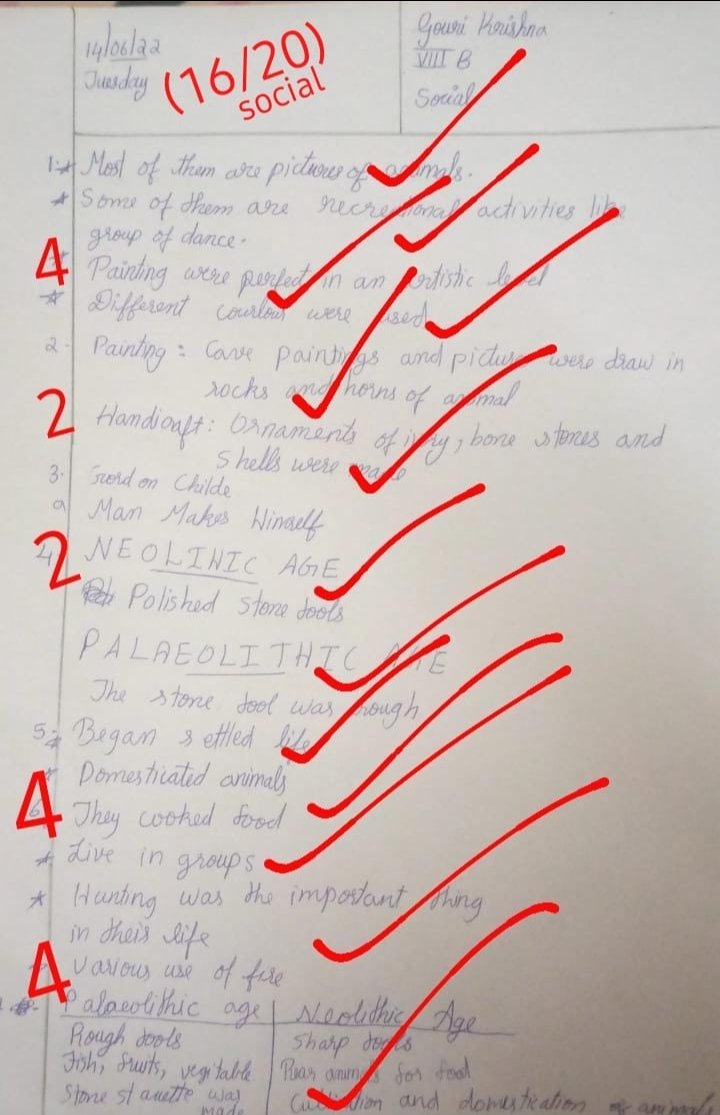 14/06/22
Tuesday
(16/20)
social
Gouri Krishna
VIII B
Social
1.* Most of them are pictures of animals.
* Some of them are recreational activities like
group of dance.
4
* Painting were perfect in an artistic level
* Different courlour were used
2. Painting : Cave paintings and picture were draw in
rocks and horns of animal
2
Handicaft : Ornaments of ivory, bone stones and
Shells were made
3. Gordon Childe
a Man Makes Himself
2
4. NEOLINIC AGE
Polished stone tools
PALAEOLITHIC AGE
The stone tool was rough
5.* Began settled life
* Domesticated animals
4
6. They cooked food
* Live in groups
* Hunting was the important thing
in their life
4
* Various use of fire
Palaeolithic age | Neolithic Age
Rough tools | Sharp tools
Fish, fruits, vegitable | Rear animals for food
Stone st auette was | Cultivation and domestication of animal
made